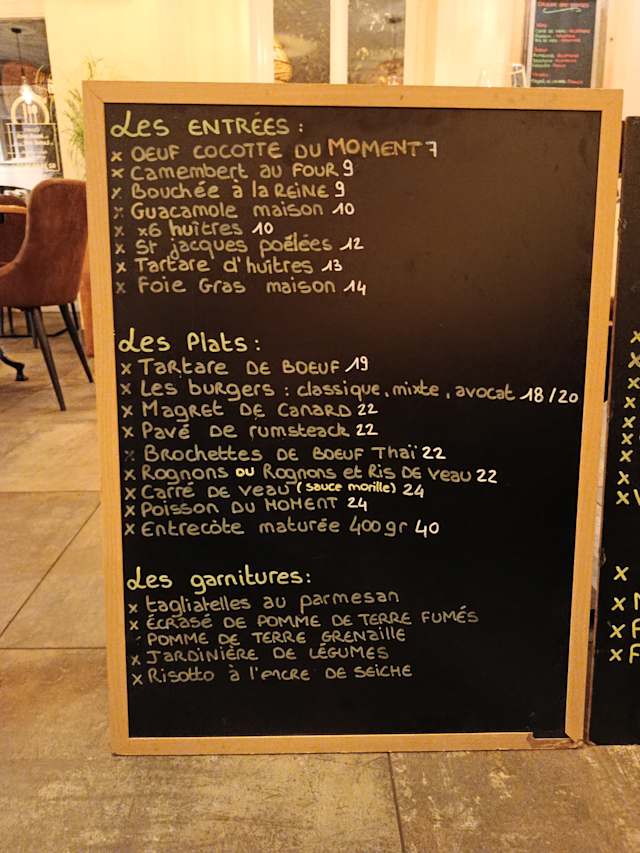 Les ENTRÉES :
x OEUF COCOTTE DU MOMENT 7
x Camembert au FOUR 9
x Bouchée à la REINE 9
x Guacamole maison 10
x x6 huîtres 10
x St jacques poêlées 12
x Tartare d'huîtres 13
x Foie Gras maison 14
Les Plats :
x Tartare DE BOEUF 19
x Les burgers : classique, mixte, avocat 18/20
x Magret DE CANARD 22
x Pavé DE rumsteack 22
x Brochettes DE BOEUF Thaï 22
x Rognons ou Rognons et Ris DE veau 22
x Carré DE veau (sauce morille) 24
x Poisson DU MOMENT 24
x Entrecôte maturée 400gr 40
Les garnitures :
x tagliatelles au parmesan
x ÉCRASÉ DE POMME DE TERRE FUMÉS
POMME DE TERRE GRENAILLE
x JARDINIÈRE DE LÉGUMES
x Risotto à l'encre DE SEICHE